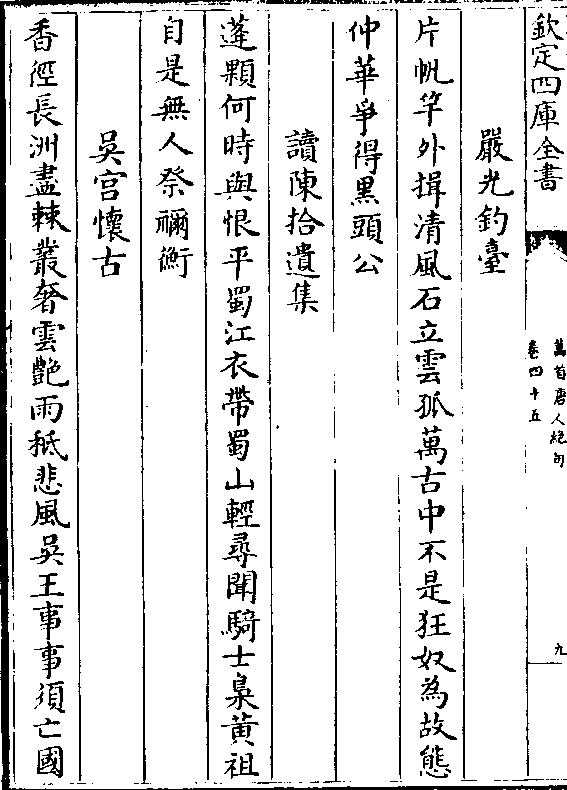 欽定四庫全書
萬首唐人絕句
卷四十五
九
嚴光釣臺
片帆竿外揖清風石立雲孤萬古中不是狂奴為故態
仲華爭得黑頭公
讀陳拾遺集
蓬顆何時與恨平蜀江衣帶蜀山輕尋聞騎士梟黃祖
自是無人祭禰衡
吳宮懷古
香徑長洲盡棘叢奢雲艷雨秪悲風吳王事事須亡國